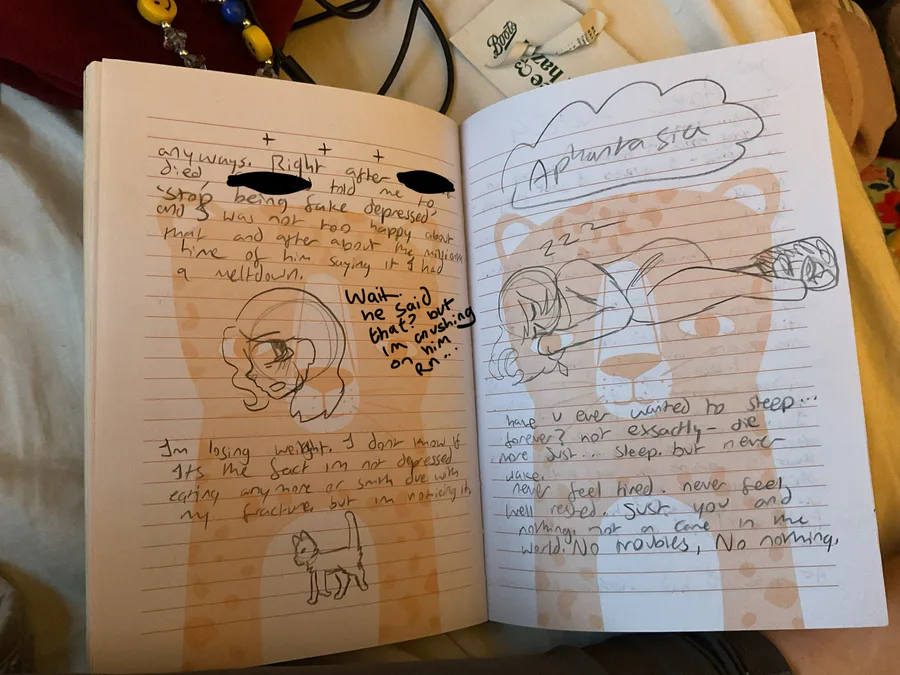 Boots
anyways. Right after
died, told me to
'stop being fake depressed'
and I was not too happy about
that and after about the millionth
time of him saying it I had
a meltdown.
Wait.
he said
that? but
im crushing
on him
RN...
Im losing weight. I dont know if
Its the fact im not depressed
eating anymore or smth due with
my fracture, but im noticing it.
Aphantasia
zzz
have u ever wanted to sleep...
forever? not exsactly - die.
more just... sleep. but never
wake.
never feel tired. never feel
well rested. Just you and
nothing. not a care in the
world. No troubles, No nothing.